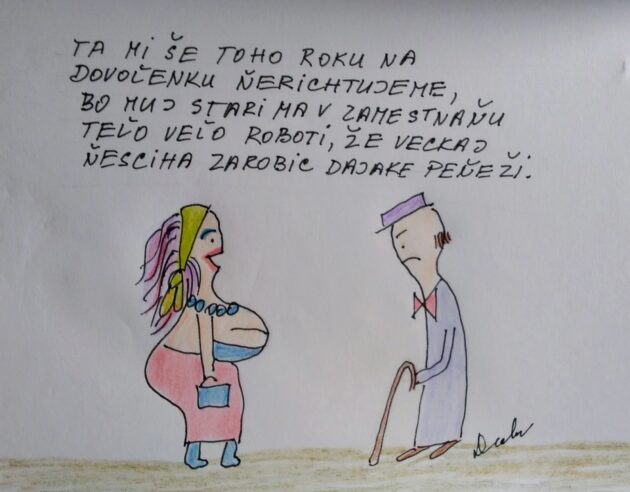 TA MI ŠE TOHO ROKU NA
DOVOČENKU ŇERICHTUJEME,
BO MUJ STARI MA V ZAMESTNAŇU
TEĽO VEĽO ROBOTI, ŽE VECKAJ
ŇESCIHA ZAROBIC DAJAKE PEŇEŽI.